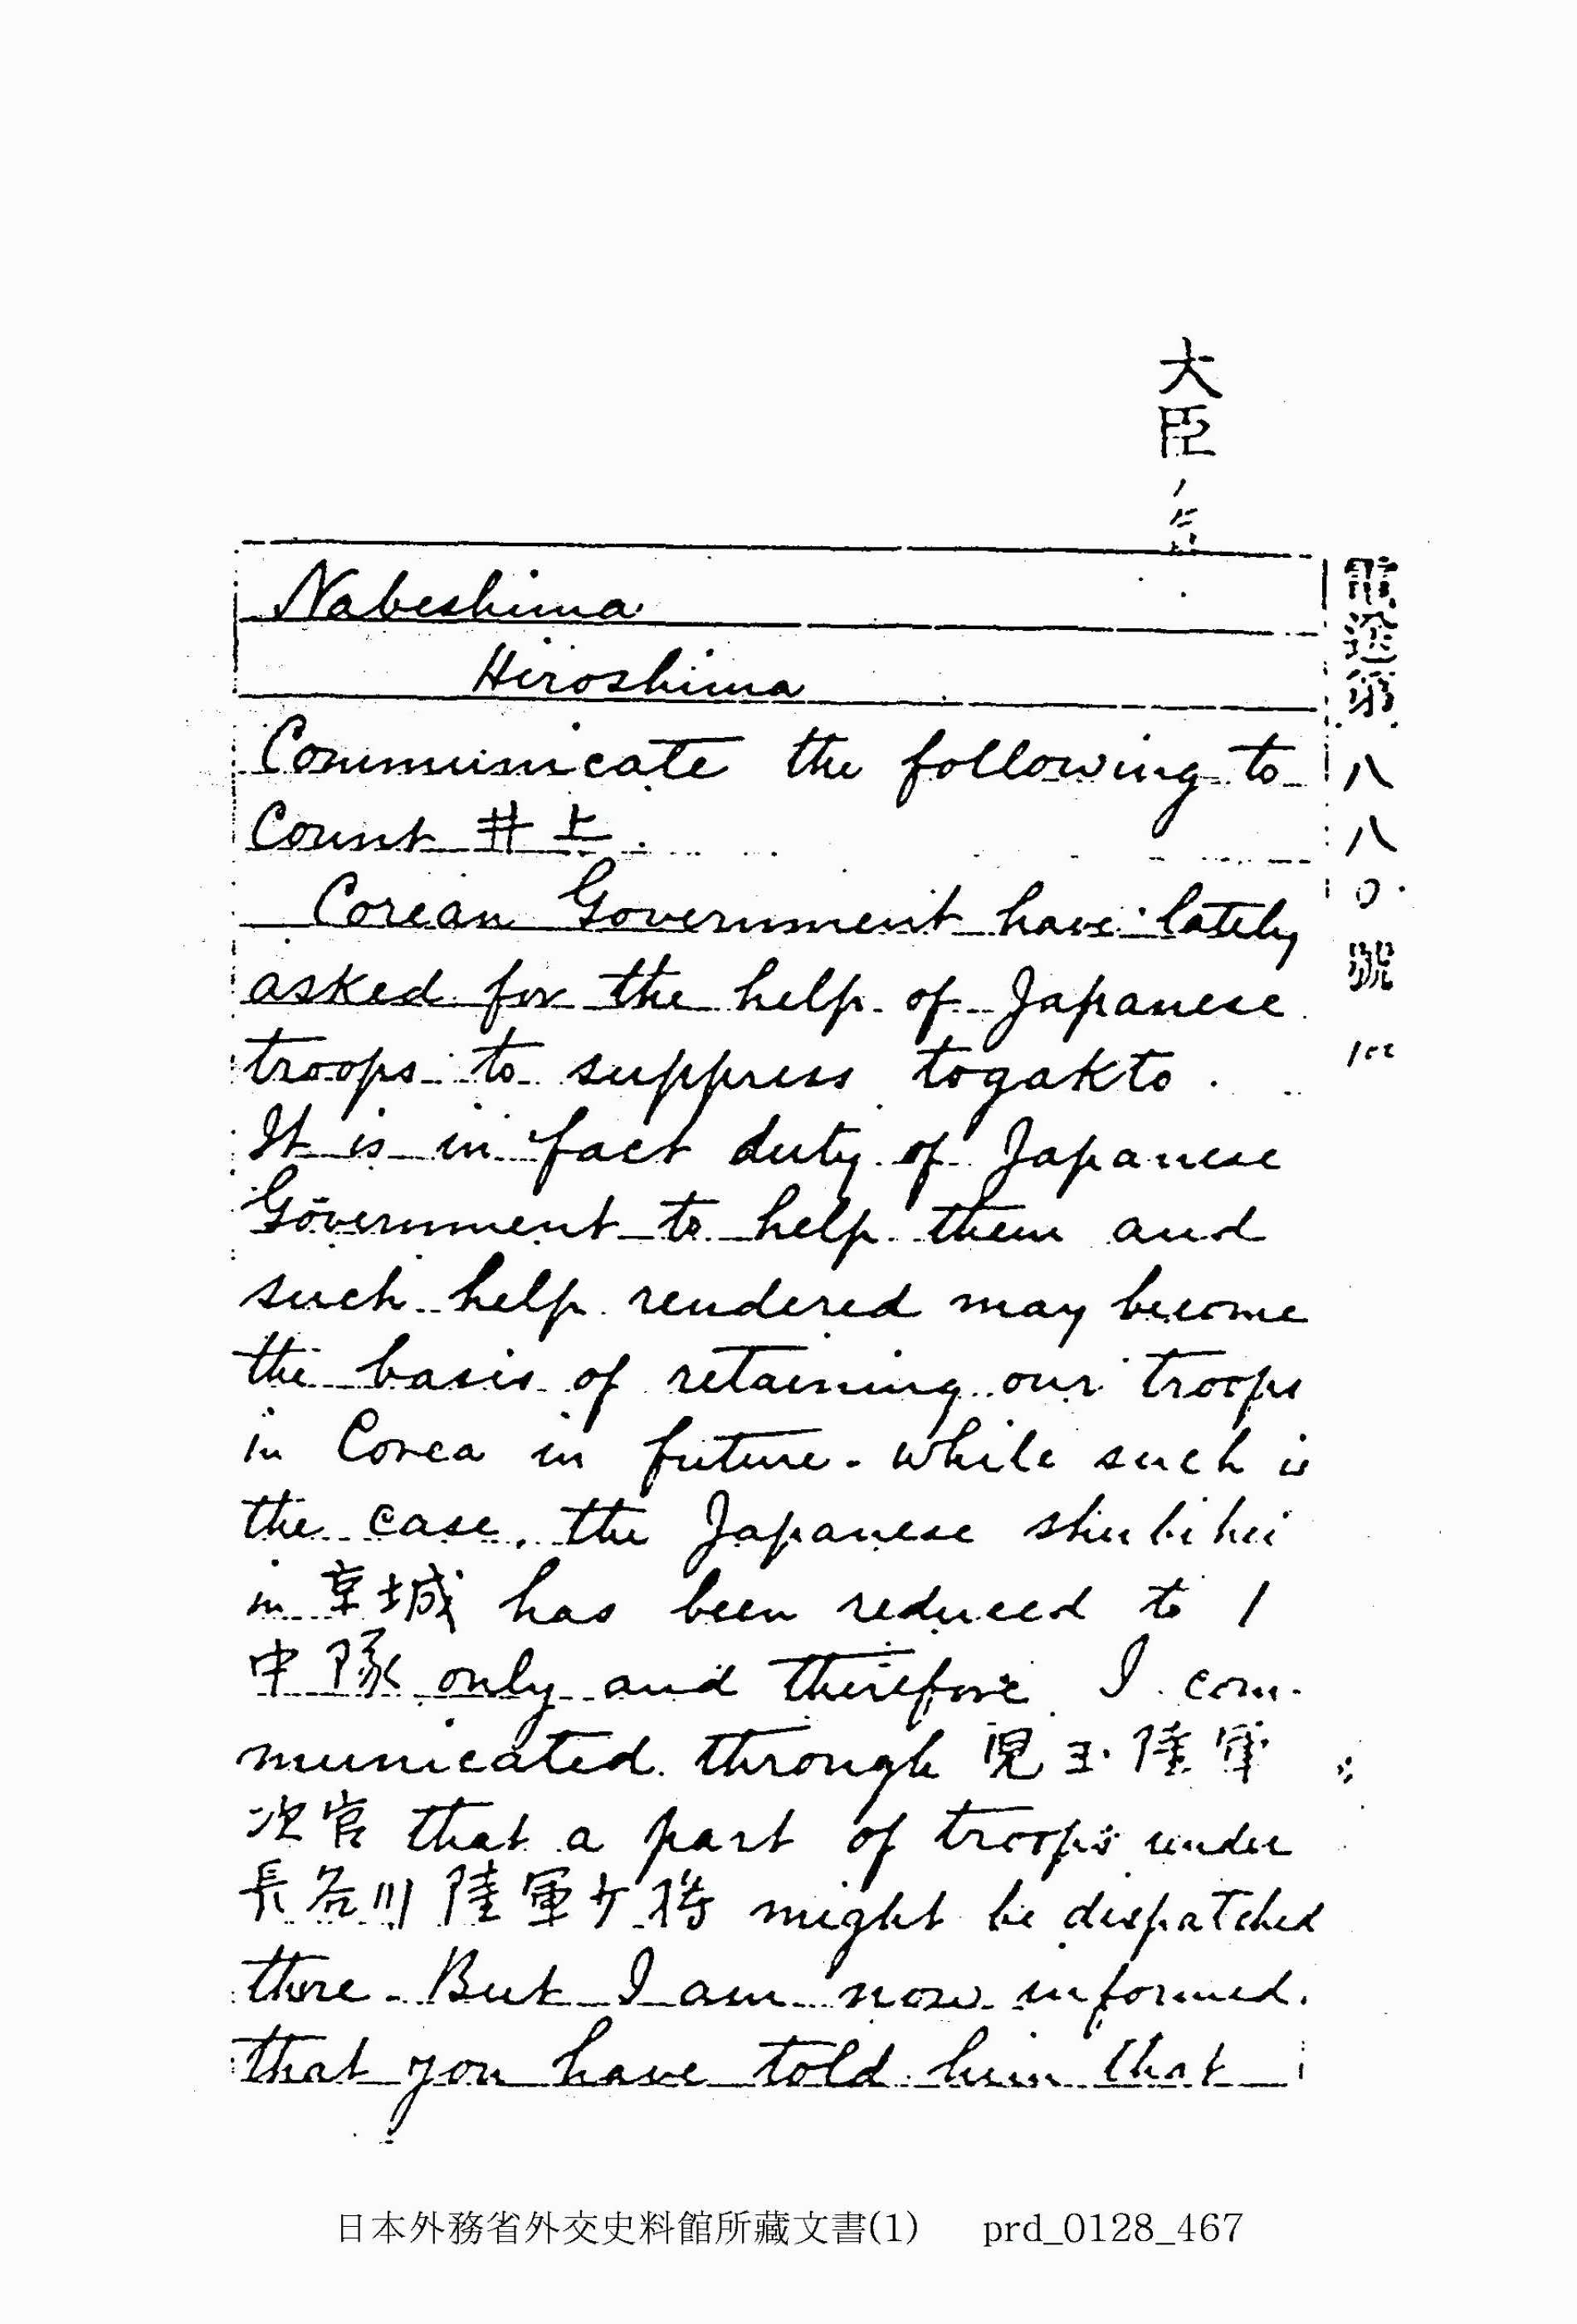 大臣
電送第八八〇號
Nabeshima
Hiroshima
Communicate the following to
Count 井上.
Corean Government have lately
asked for the help of Japanese
troops to suppress togakto.
It is in fact duty of Japanese
Government to help them and
such help rendered may become
the basis of retaining our troops
in Corea in future. while such is
the case, the Japanese shubihei
in 京城 has been reduced to 1
中隊 only and therefore I com-
municated through 児玉陸軍
次官 that a part of troops under
長谷川陸軍少将 might be dispatched
there. But I am now informed
that you have told him that
日本外務省外交史料館所藏文書(1) prd_0128_467